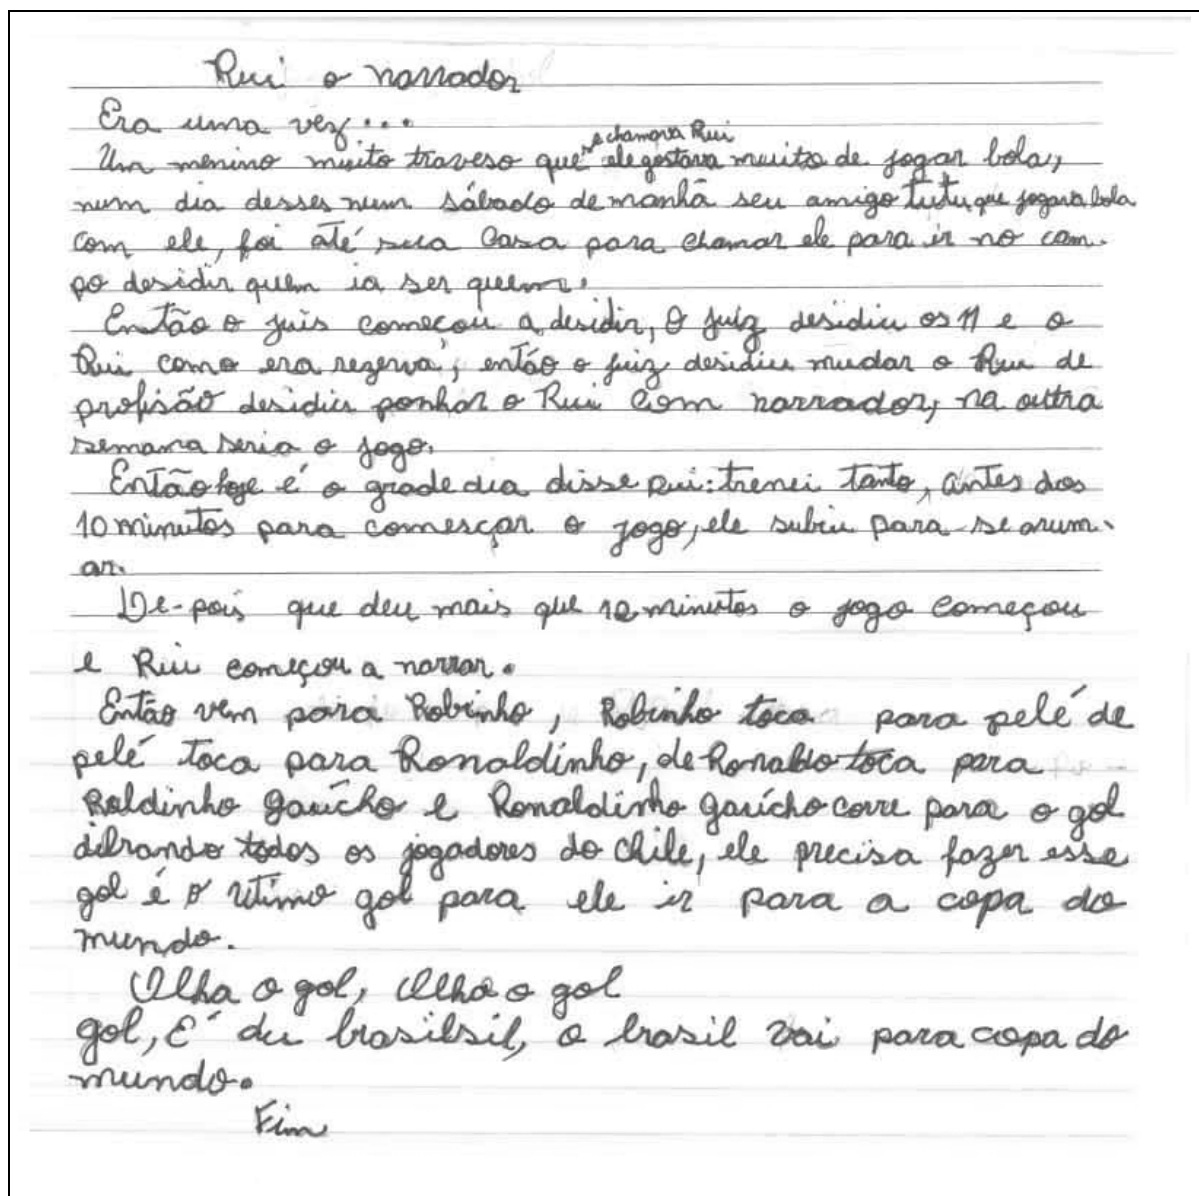 Rui o narrador
Era uma vez...
Um menino muito traveso que se chamava Rui ele gostava muito de jogar bola,
num dia desses num sábado de manhã seu amigo tutu que jogava bola
com ele, foi até sua casa para chamar ele para ir no cam-
po desidir quem ia ser quem.
Então o juis começou a desidir, O juiz desidiu os 11 e o
Rui como era rezerva, então o juiz desidiu mudar o Rui de
profisão desidiu ponhar o Rui com narrador, na outra
semana seria o jogo.
Então hoje é o grade dia disse Rui: trenei tanto, antes dos
10 minutos para comesçar o jogo, ele subiu para se arum-
ar.
De-pois que deu mais que 10 minutos o jogo começou
e Rui começou a narrar.
Então vem para Robinho, Robinho toca para pelé de
pelé toca para Ronaldinho, de Ronaldo toca para
Roldinho gaúcho e Ronaldinho gaúcho corre para o gol
dibrando todos os jogadores do Chile, ele precisa fazer esse
gol é o utimo gol para ele ir para a copa do
mundo.
Olha o gol, Olha o gol
gol, É du brasilsil, o brasil vai para copa do
mundo.
Fim